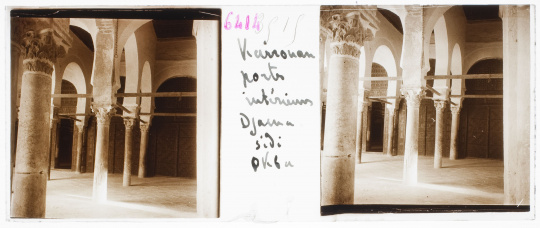 6414
Kairouan
ports
intérieurs
Djama
sidi
okba